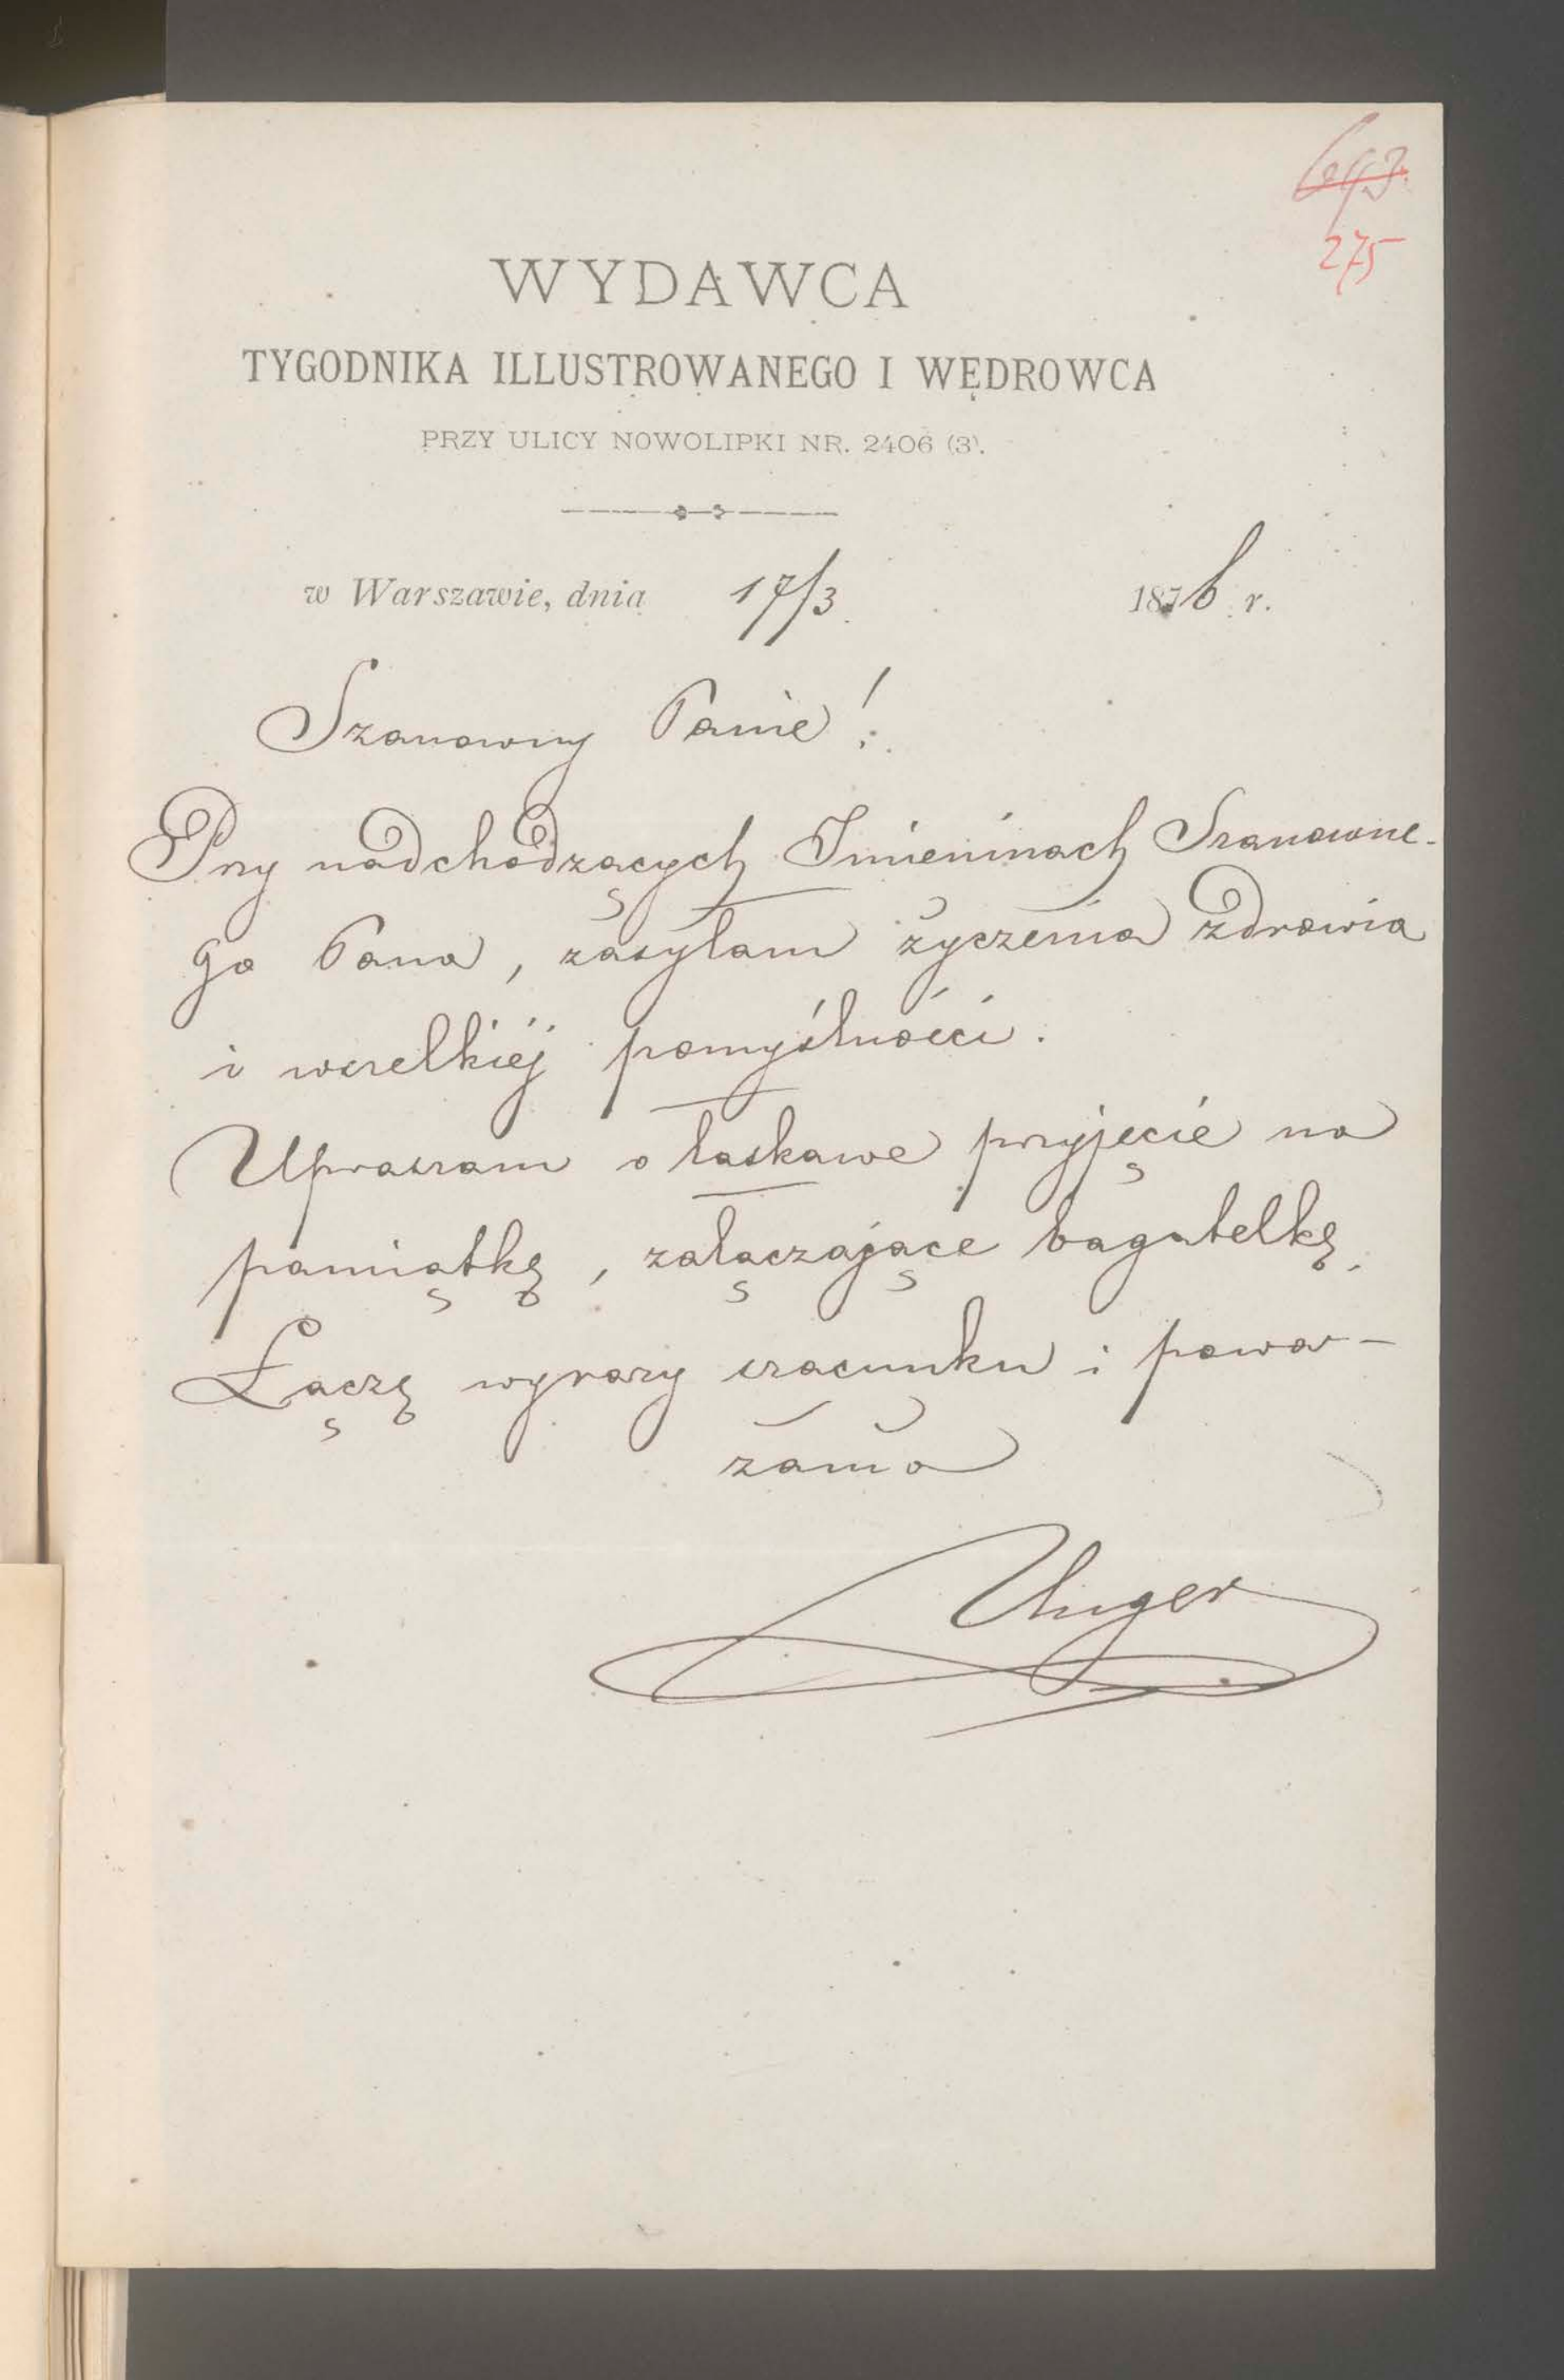 275
WYDAWCA
TYGODNIKA ILLUSTROWANEGO I WĘDROWCA
PRZY ULICY NOWOLIPKI NR. 2406 (3).
w Warszawie, dnia 17/3 1876 r.
Szanowny Panie!
Przy nadchodzących Imieninach Szanowne-
go Pana, zasyłam życzenia zdrowia
i wszelkiéj pomyślności.
Upraszam o łaskawe przyjęcie na
pamiątkę, załączające bagatelkę.
Łączę wyrazy szacunku i powa-
żania
Unger